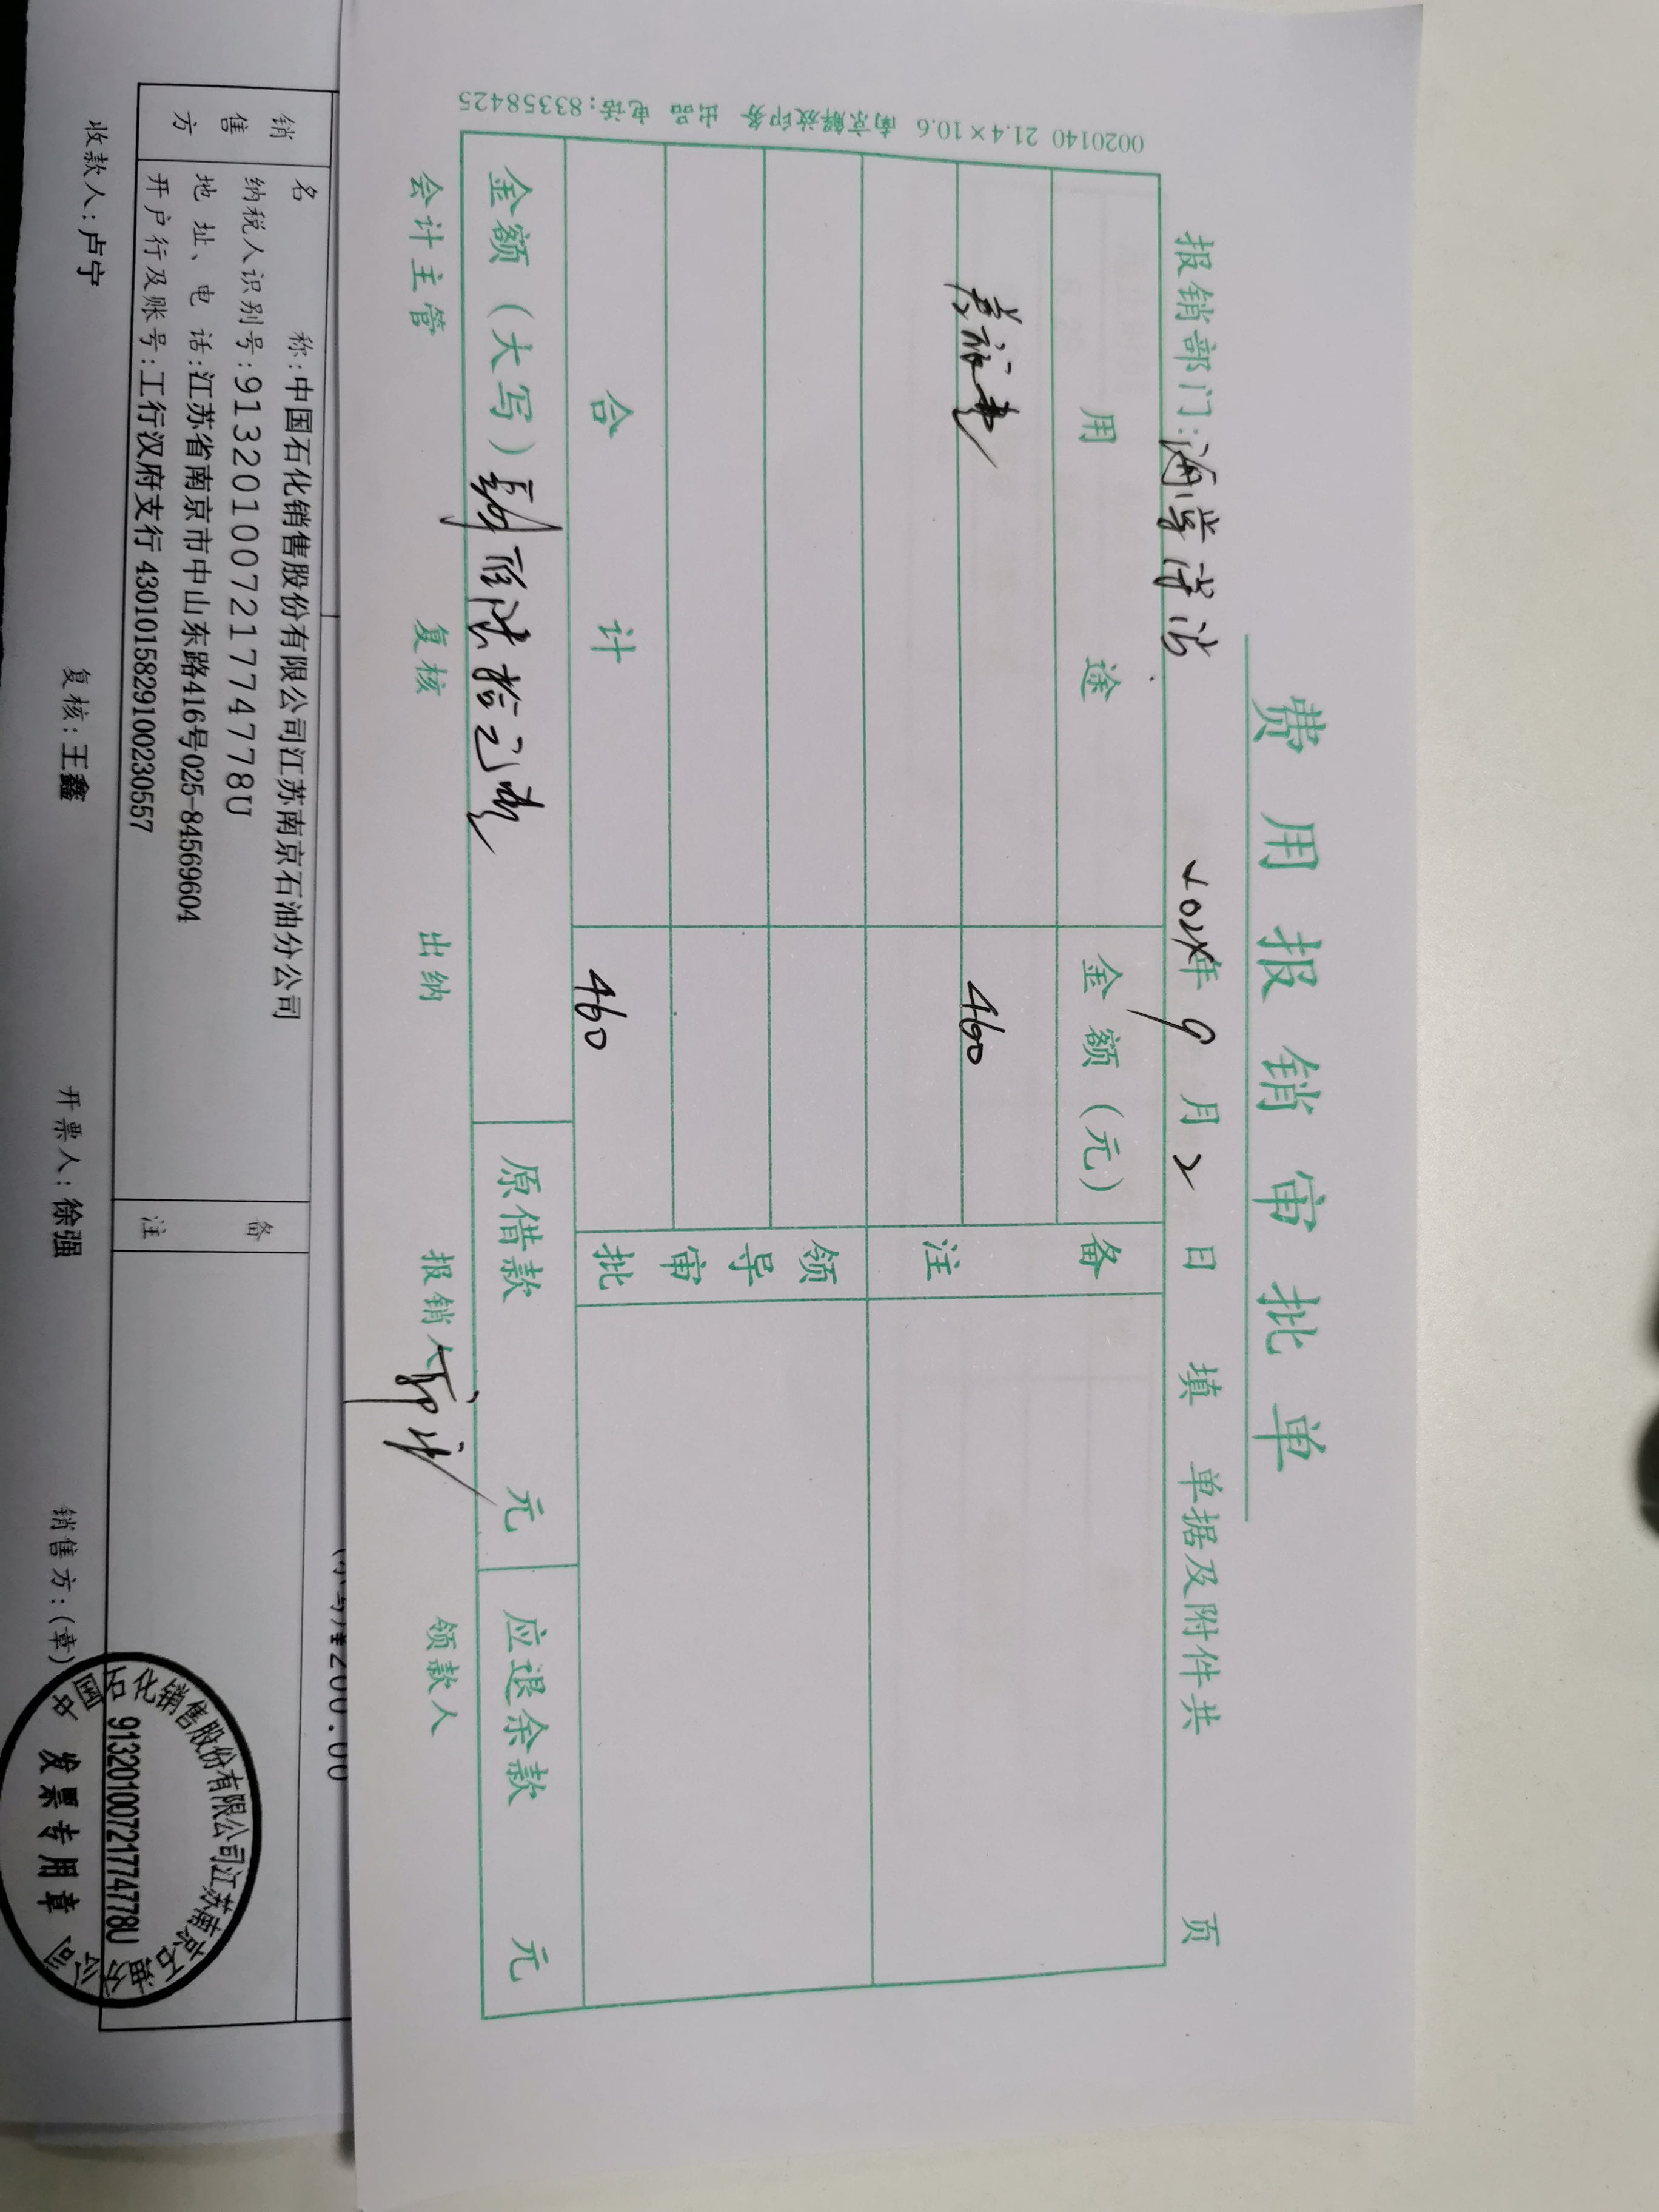 费用报销审批单
报销部门:
年9月2日 填 单据及附件共 页
用途 金额(元) 备注
费 460
领导审批
合计 460
金额(大写) 佰陆拾元整 原借款 元 应退余款 元
会计主管 复核 出纳 报销人 领款人
0020140 21.4×10.6 南京解放印务 出品 电话:83358425
200.00
销售方
名 称:中国石化销售股份有限公司江苏南京石油分公司
纳税人识别号:91320100721774778U
地 址、电 话:江苏省南京市中山东路416号025-84569604
开户行及账号:工行汉府支行 4301015829100230557
备注
收款人:卢宁 复核:王鑫 开票人:徐强 销售方:(章)
中国石化销售股份有限公司江苏南京石油分公司
91320100721774778U
发票专用章